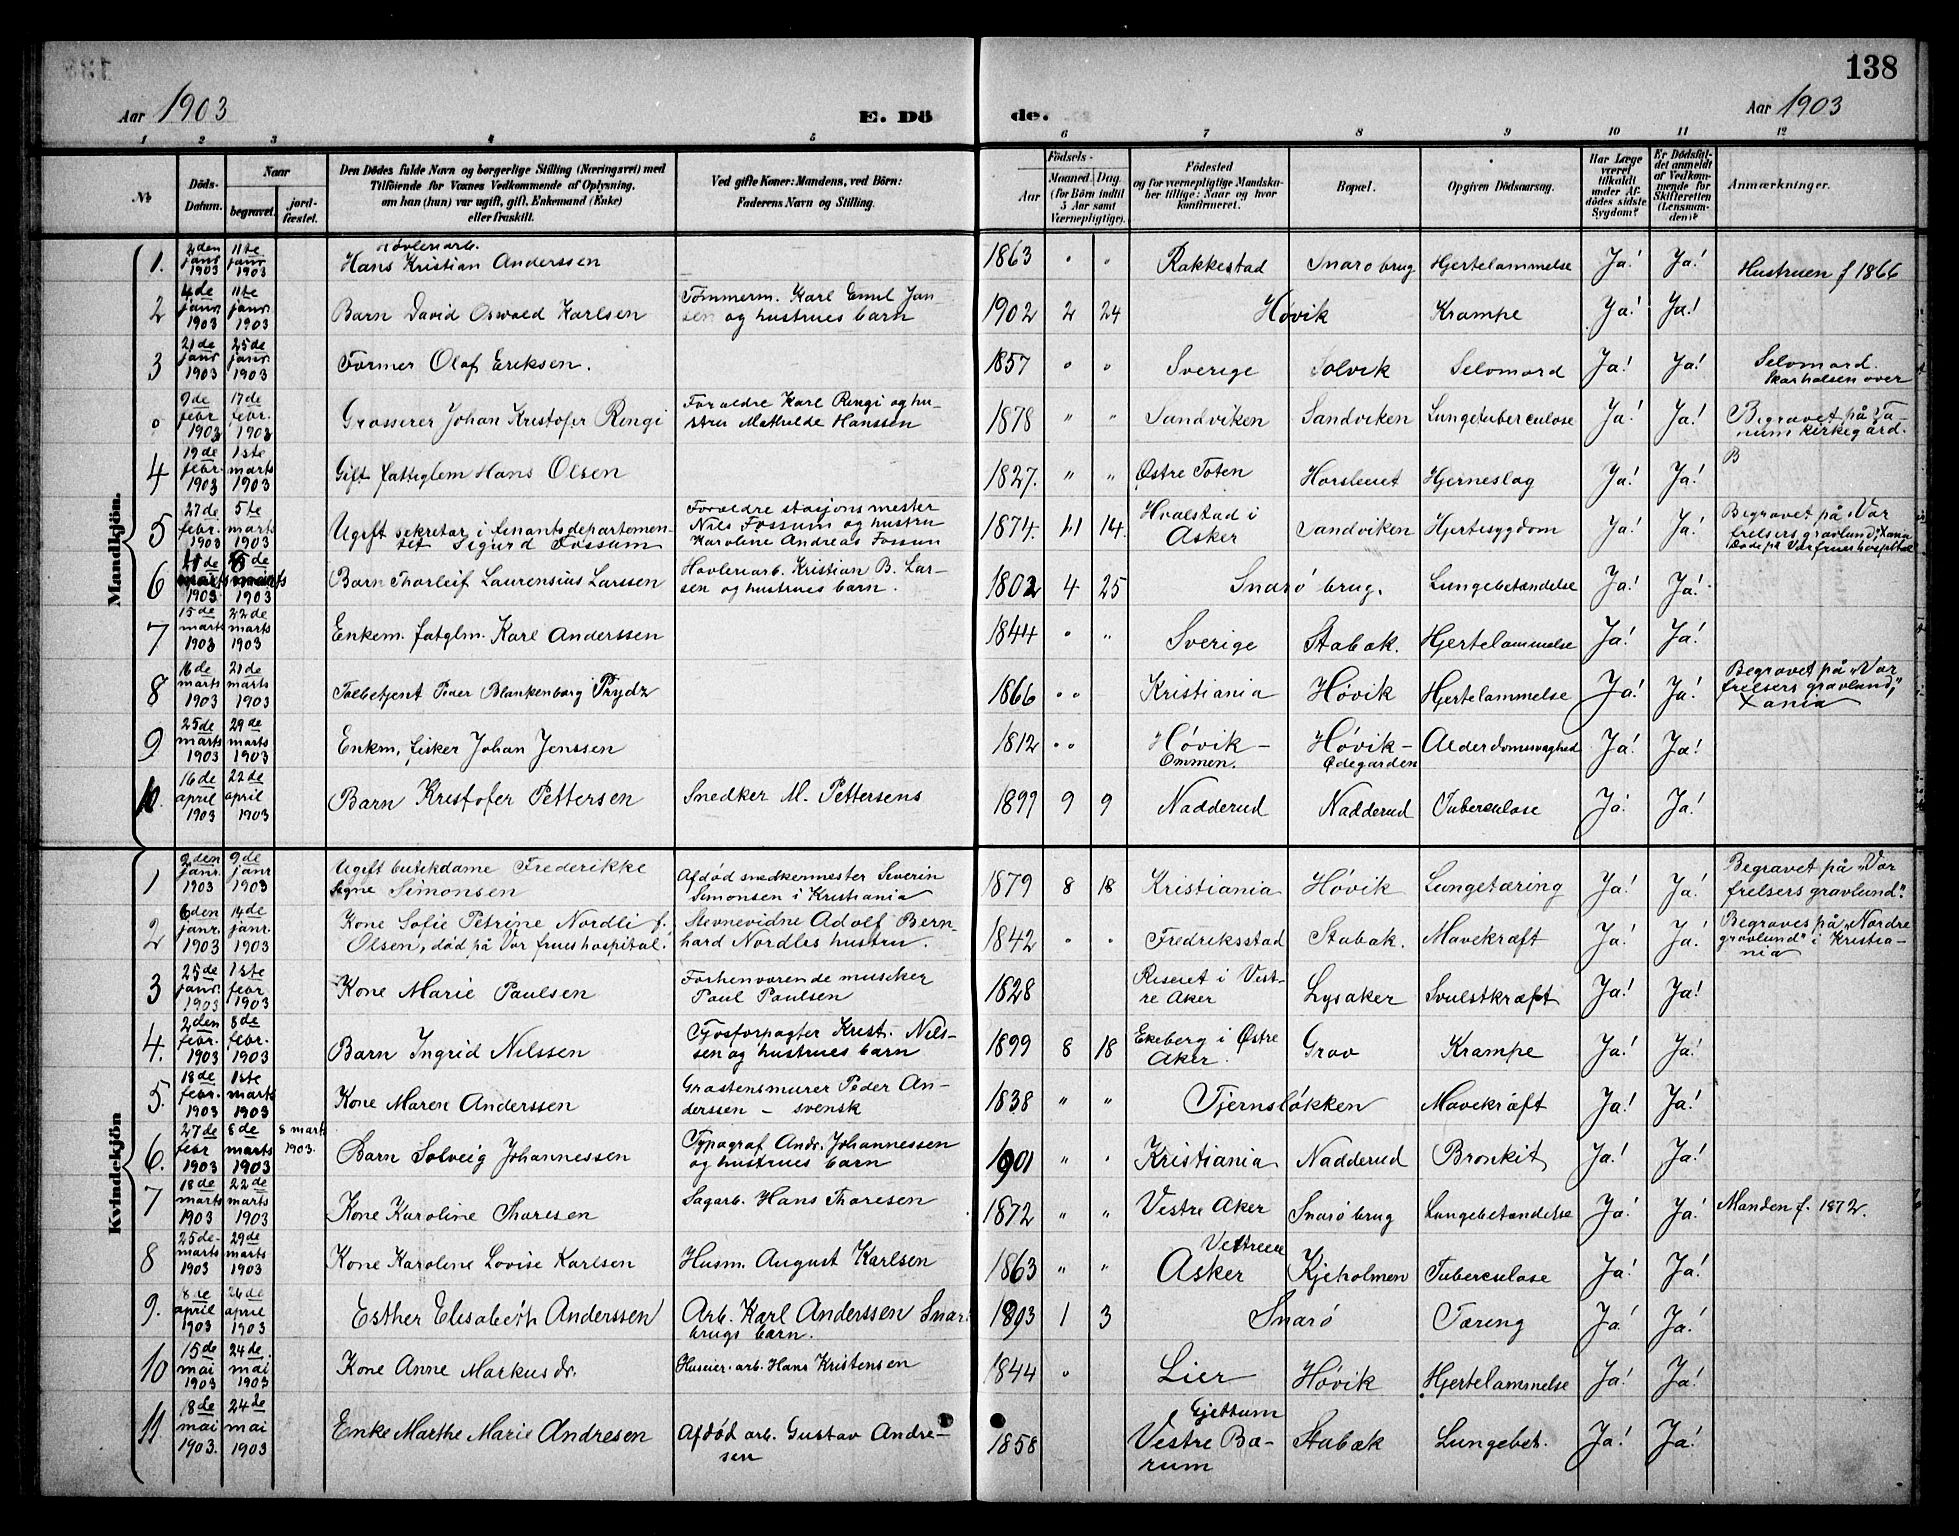 138
Aar 1903
E. Dö
de.
Aar 1903
1 2 3 4 5 6 7 8 9 10 11 12
No
Döds-Datum.
Naar
begravet.
jord-fæstet.
Den Dödes fulde Navn og borgerlige Stilling (Næringsvei) med
Tilföiende for Voxnes Vedkommende af Oplysning,
om han (hun) var ugift, gift, Enkemand (Enke)
eller fraskilt.
Ved gifte Koner: Mandens, ved Börn:
Faderens Navn og Stilling.
Födsels-
Aar
Maaned Dag
(for Börn indtil
5 Aar samt
Værnepligtige).
Födested
og for værnepligtige Mandska-
ber tillige: Naar og hvor
konfirmeret.
Bopæl.
Opgiven Dödsaarsag.
Har Læge
været
tilkaldt
under Af-
dödes sidste
Sygdom?
Er Dödsfal-
det anmeldt
af Vedkom-
mende for
Skifteretten
(Lensman-
den)?
Anmærkninger.
Mandkjön.
1. 2den janr 1903 11te janr 1903 Høvleriarb. Hans Kristian Anderssen 1863 " " Rakkestad Snarøbrug Hjertelammelse Ja! Ja! Hustruen f 1866
2 4de janr. 1903 11te janr. 1903 Barn David Oswald Karlsen Tømmerm. Karl Emil Jan
sen og hustrues barn 1902 2 24 Høvik Krampe Ja! Ja!
3 21de janr 1903 25de janr. 1903 Former Olaf Eriksen. 1857 " " Sverige Solvik Selvmord Ja! Ja! Selvmord.
skar halsen over
" 9de febr 1903 17de febr. 1903 Grosserer Johan Kristofer Ringi Forældre Karl Ringi og hu-
stru Mathilde Hanssen 1878 " " Sandviken Sandviken Lungetuberculose Ja! Ja! Begravet på Ta-
num kirkegård.
4 19de febr. 1903 1ste marts 1903 Gift fattiglem Hans Olsen 1827. " " Østre Toten Horsleuet Hjerneslag Ja! Ja! B
5 27de febr. 1903 5te marts 1903 Ugift sekretær i finantsdepartemen-
tet Sigurd Fossum Forældre stasjonsmester
Nils Fossum og hustru
Karoline Andreas Fossum 1874. 11 14. Hvalstad i
Asker Sandviken Hjertesygdom Ja! Ja! Begravet på "Vor
frelsers gravlund", Xania
Døde på Vor frues hospital
6 11de marts 1903 15de marts 1903 Barn Thorleif Laurensius Larssen Høvleriarb. Kristian B. Lar-
sen og hustrues barn. 1802 4 25 Snarøbrug. Lungebetændelse Ja! Ja!
7 15de marts 1903 22de marts 1903 Enkem. fatglm. Karl Anderssen 1844 " " Sverige Stabæk. Hjertelammelse Ja! Ja!
8 16de marts 1903 21de marts 1903 Tolbetjent Peder Blankenborg Prydz 1866 " " Kristiania Høvik Hjertelammelse Ja! Ja! Begravet på "Vor
frelsers gravlund",
Xania
9 25de marts 1903 29de marts 1903 Enkm, fisker Johan Jenssen 1812 " " Høvik-
Ommen. Høvik-
Ødegården Alderdomssvaghed Ja! Ja!
10. 16de april 1903 22de april 1903 Barn Kristofer Pettersen Snedker M. Pettersens 1899 9 9 Nadderud Nadderud Tuberculose Ja! Ja!
Kvindekjön
1 2den janr. 1903 9de janr 1903 Ugift butikdame Frederikke
Signe Simonsen Afdød snedkermester Severin
Simonsen i Kristiania 1879 8 18 Kristiania Høvik Lungetæring Ja! Ja! Begravet på "Vor
frelsers gravlund".
2 6den janr. 1903 14de janr. 1903 Kone Sofie Petrine Nordli f.
Olsen, død på Vor frues hospital. Stevnevidne Adolf Bern-
hard Nordlis hustru. 1842 " " Fredriksstad Stabæk. Mavekræft Ja! Ja! Begraves på "Nordre
gravlund" i Kristia-
nia
3 25de janr. 1903 1ste febr 1903 Kone Marie Paulsen Forhenværende musiker
Paul Paulsen 1828 Riseret i Vest-
re Aker Lysaker Svulstkræft Ja! Ja!
4. 2den febr. 1903 8de febr. 1903 Barn Ingrid Nilssen Fjøsforpagter Krist. Nils-
sen og hustrues barn 1899 8 18 Ekeberg i Østre
Aker. Grav Krampe Ja! Ja!
5. 18de febr. 1903 1ste marts 1903 Kone Maren Anderssen Gråstensmurer Peder An-
derssen - svensk 1838 " " Tjernsløkken Mavekræft Ja! Ja!
6. 27de febr 1903 8de marts 1903 8 marts 1903. Barn Solveig Johannessen Typograf Andr. Johannessen
og hustrues barn 1901 " " Kristiania Nadderud Bronkit Ja! Ja!
7 18de marts 1903 22de marts 1903 Kone Karoline Thoresen Sagarb. Hans Thoresen 1872 " " Vestre Aker Snarøbrug Lungebetændelse Ja! Ja! Manden f. 1872.
8 25de marts 1903 29de marts 1903 Kone Karoline Lovise Karlsen Husm. August Karlsen 1863 " " Asker Kjeholmen Tuberculose Ja! Ja!
9. 8de april 1903 26de april 1903 Esther Elisabeth Anderssen Arb. Karl Anderssen Snarø
brugs barn. 1893 1 3 Snarø Tæring Ja! Ja!
10 15de mai 1903 24de mai 1903 Kone Anne Markusdr. Huseier. arb. Hans Kristensen 1844 " Lier Høvik Hjertelammelse Ja! Ja!
11 18de mai 1903. 24de mai 1903 Enke Marthe Marie Andresen Afdød arb. Gustav Andre-
sen 1858 Gjettum
Vestre Bæ-
rum Stabæk Lungebet. Ja! Ja!